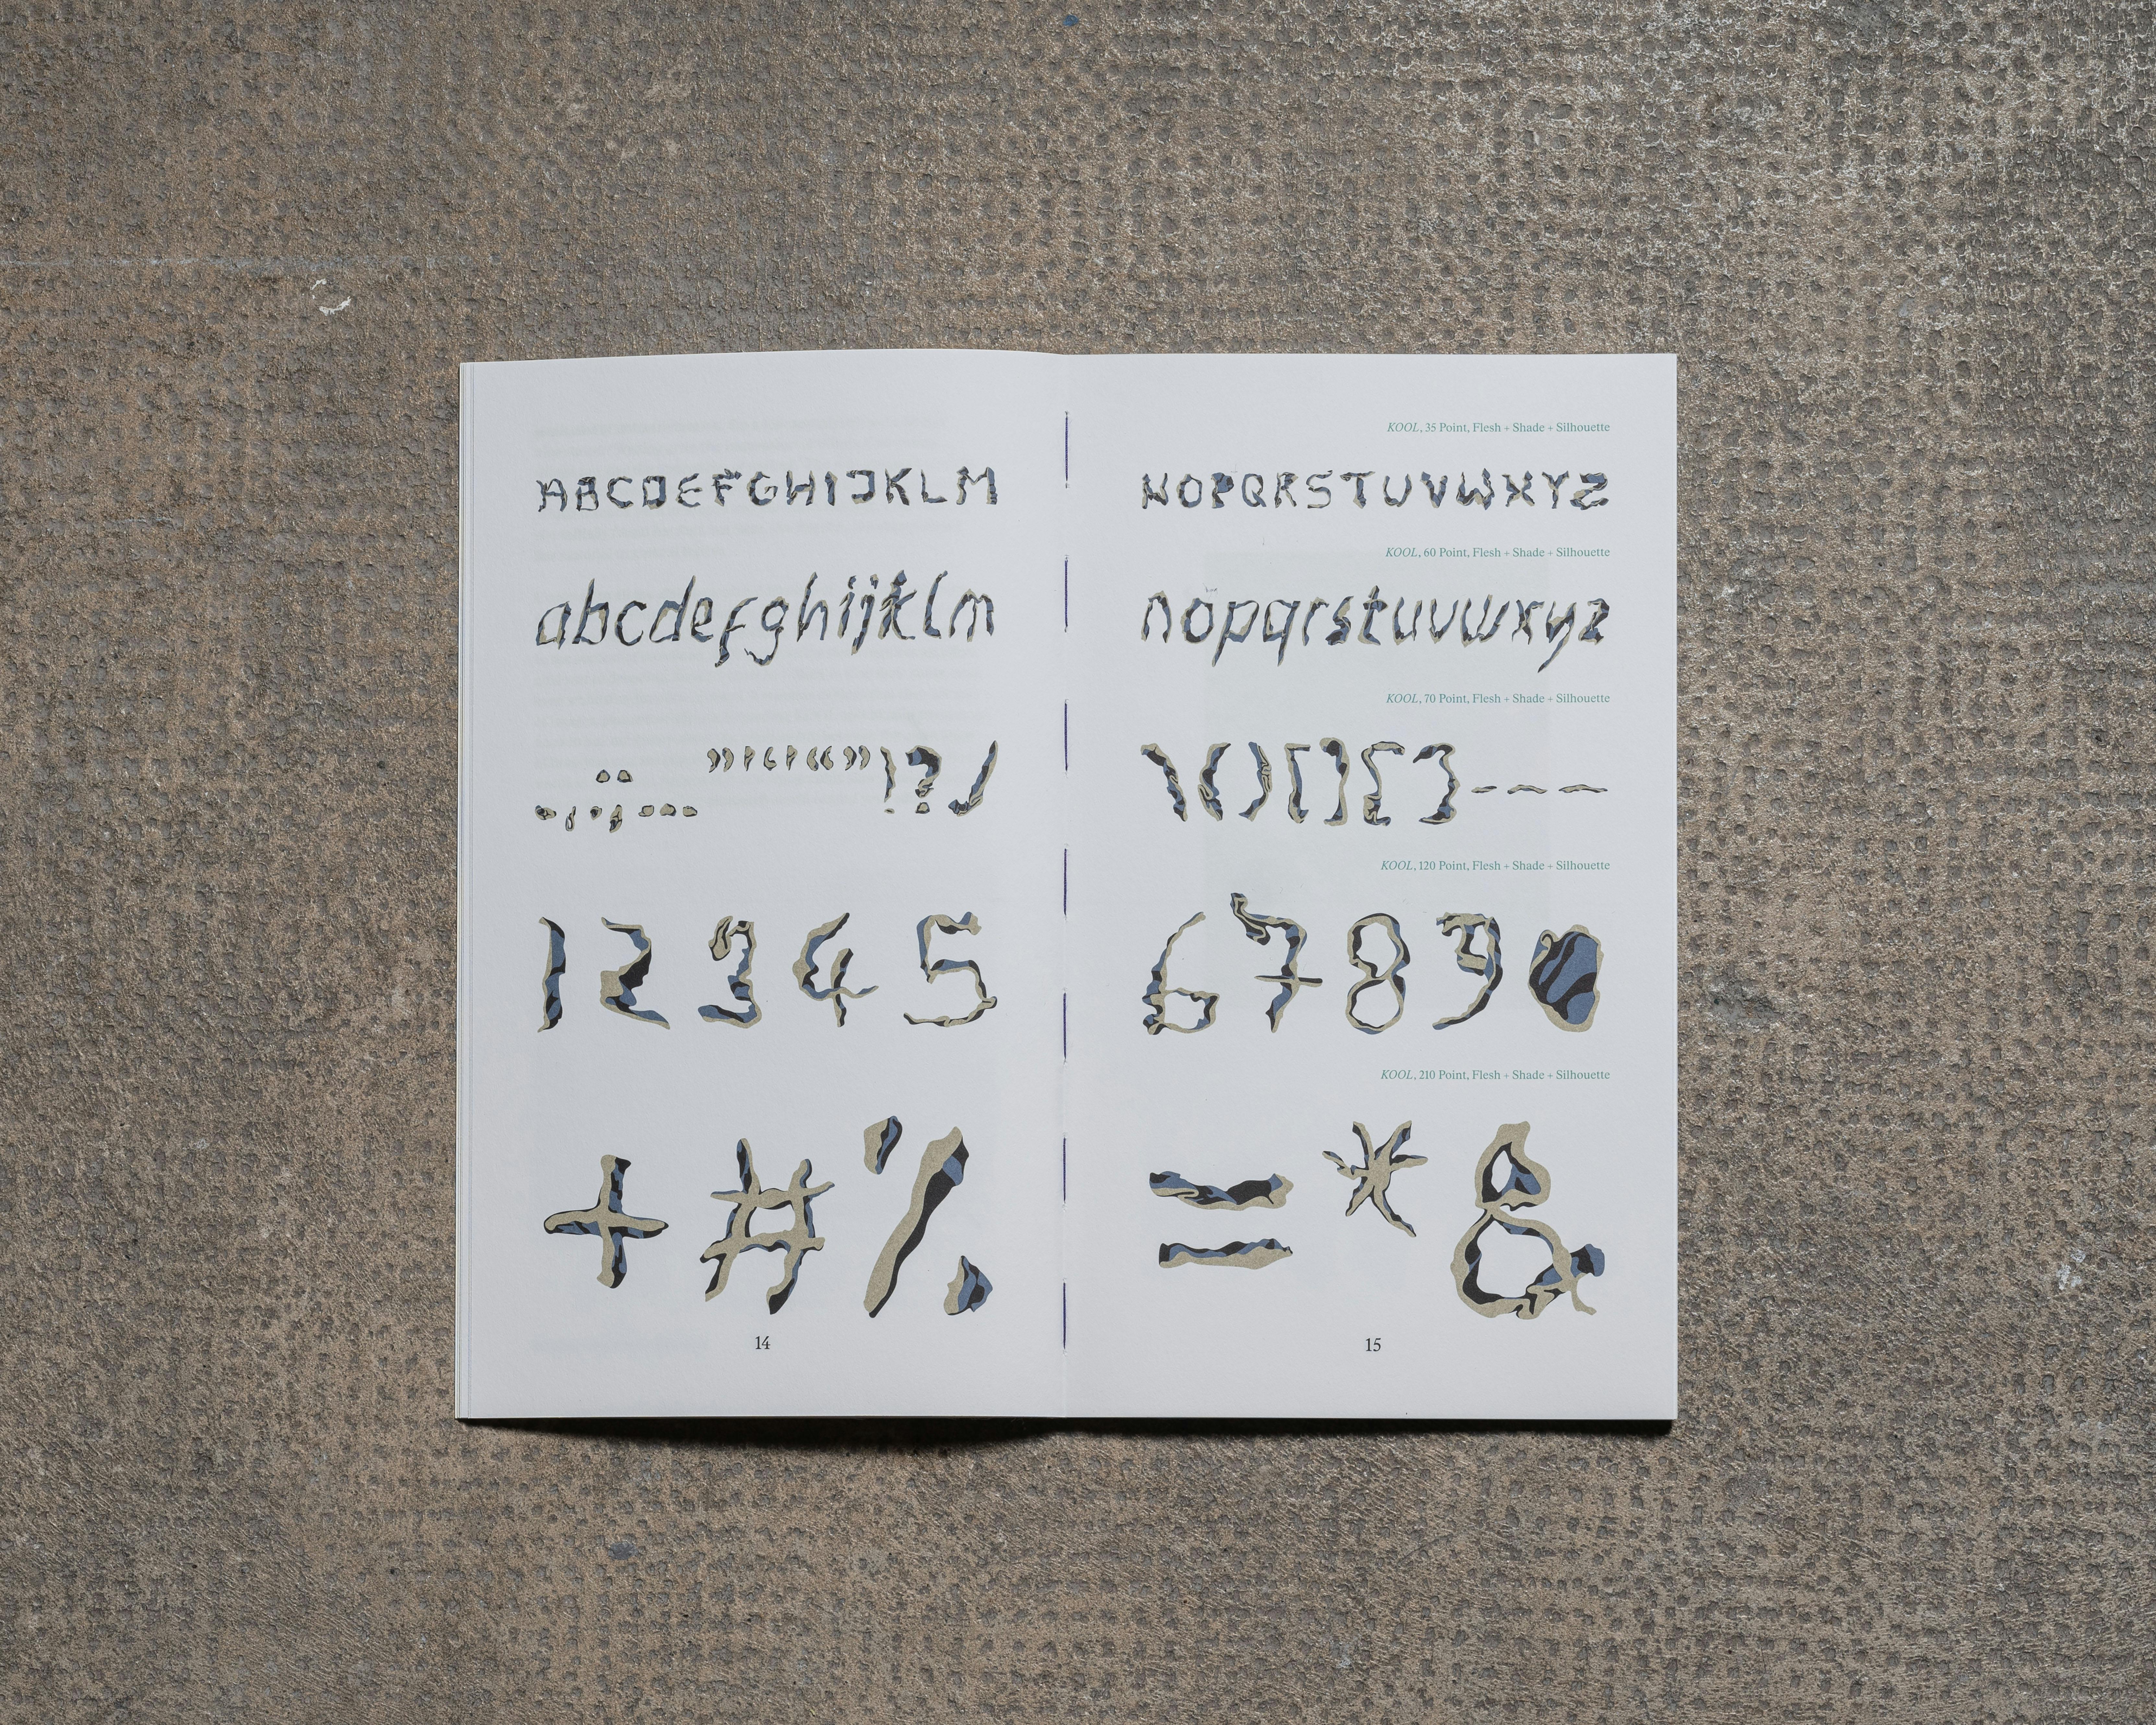 ABCDEFGHIJKLM
abcdefghijklm
12345
+#%
14
KOOL, 35 Point, Flesh + Shade + Silhouette
NOPQRSTUVWXYZ
KOOL, 60 Point, Flesh + Shade + Silhouette
nopqrstuvwxyz
KOOL, 70 Point, Flesh + Shade + Silhouette
\()[]{}-–—
KOOL, 120 Point, Flesh + Shade + Silhouette
67890
KOOL, 210 Point, Flesh + Shade + Silhouette
=*&
15